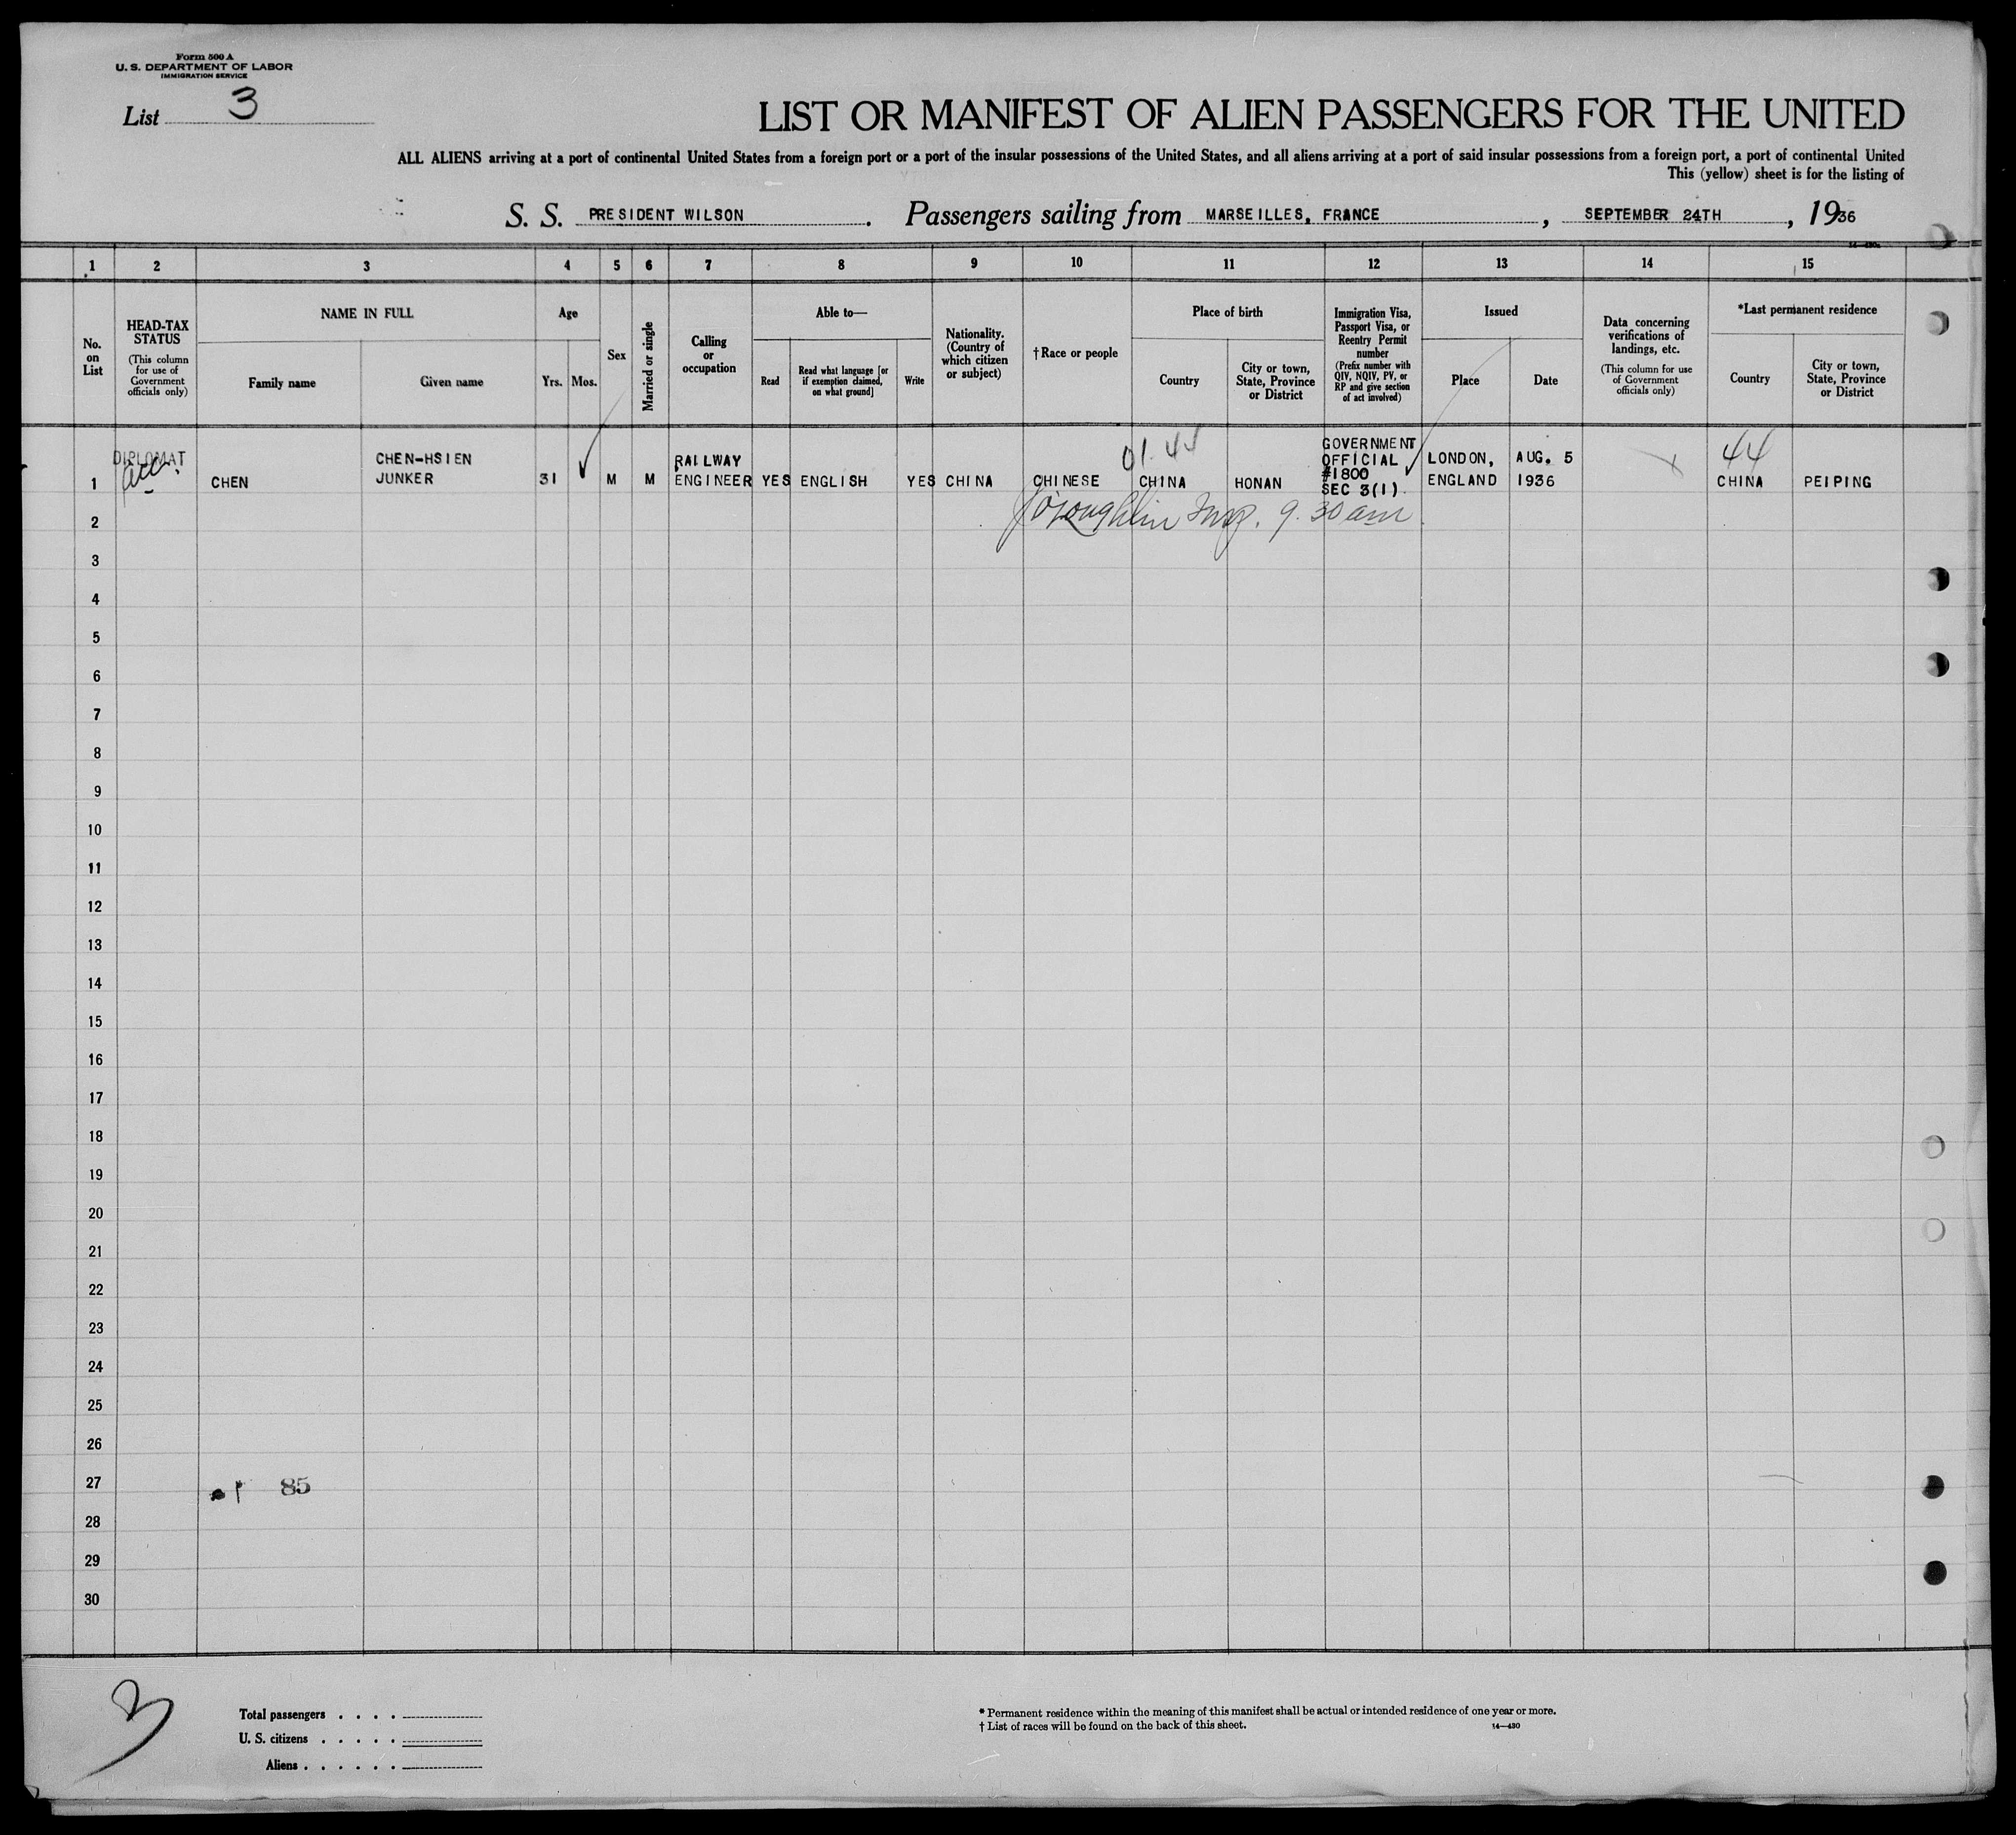 Form 500 A
U. S. DEPARTMENT OF LABOR
IMMIGRATION SERVICE
List 3
LIST OR MANIFEST OF ALIEN PASSENGERS FOR THE UNITED
ALL ALIENS arriving at a port of continental United States from a foreign port or a port of the insular possessions of the United States, and all aliens arriving at a port of said insular possessions from a foreign port, a port of continental United
This (yellow) sheet is for the listing of
S. S. PRESIDENT WILSON. Passengers sailing from MARSEILLES, FRANCE, SEPTEMBER 24TH, 1936
1 2 3 4 5 6 7 8 9 10 11 12 13 14 15
No. on List
HEAD-TAX STATUS
(This column for use of Government officials only)
NAME IN FULL
Family name
Given name
Age
Yrs.
Mos.
Sex
Married or single
Calling or occupation
Able to—
Read
Read what language [or if exemption claimed, on what ground]
Write
Nationality. (Country of which citizen or subject)
†Race or people
Place of birth
Country
City or town, State, Province or District
Immigration Visa, Passport Visa, or Reentry Permit number
(Prefix number with QIV, NQIV, PV, or RP and give section of act involved)
Issued
Place
Date
Data concerning verifications of landings, etc.
(This column for use of Government officials only)
*Last permanent residence
Country
City or town, State, Province or District
1
DIPLOMAT
CHEN
CHEN-HSIEN
JUNKER
31
M
M
RAILWAY
ENGINEER
YES
ENGLISH
YES
CHINA
CHINESE
01.44
CHINA
HONAN
GOVERNMENT
OFFICIAL
#1800
SEC 3(1)
LONDON,
ENGLAND
AUG. 5
1936
44
CHINA
PEIPING
2
J O'Loughlin Insp. 9.30 am
3
4
5
6
7
8
9
10
11
12
13
14
15
16
17
18
19
20
21
22
23
24
25
26
27
85
28
29
30
3
Total passengers . . . .
U. S. citizens . . . . .
Aliens . . . . . .
* Permanent residence within the meaning of this manifest shall be actual or intended residence of one year or more.
† List of races will be found on the back of this sheet.
14—430